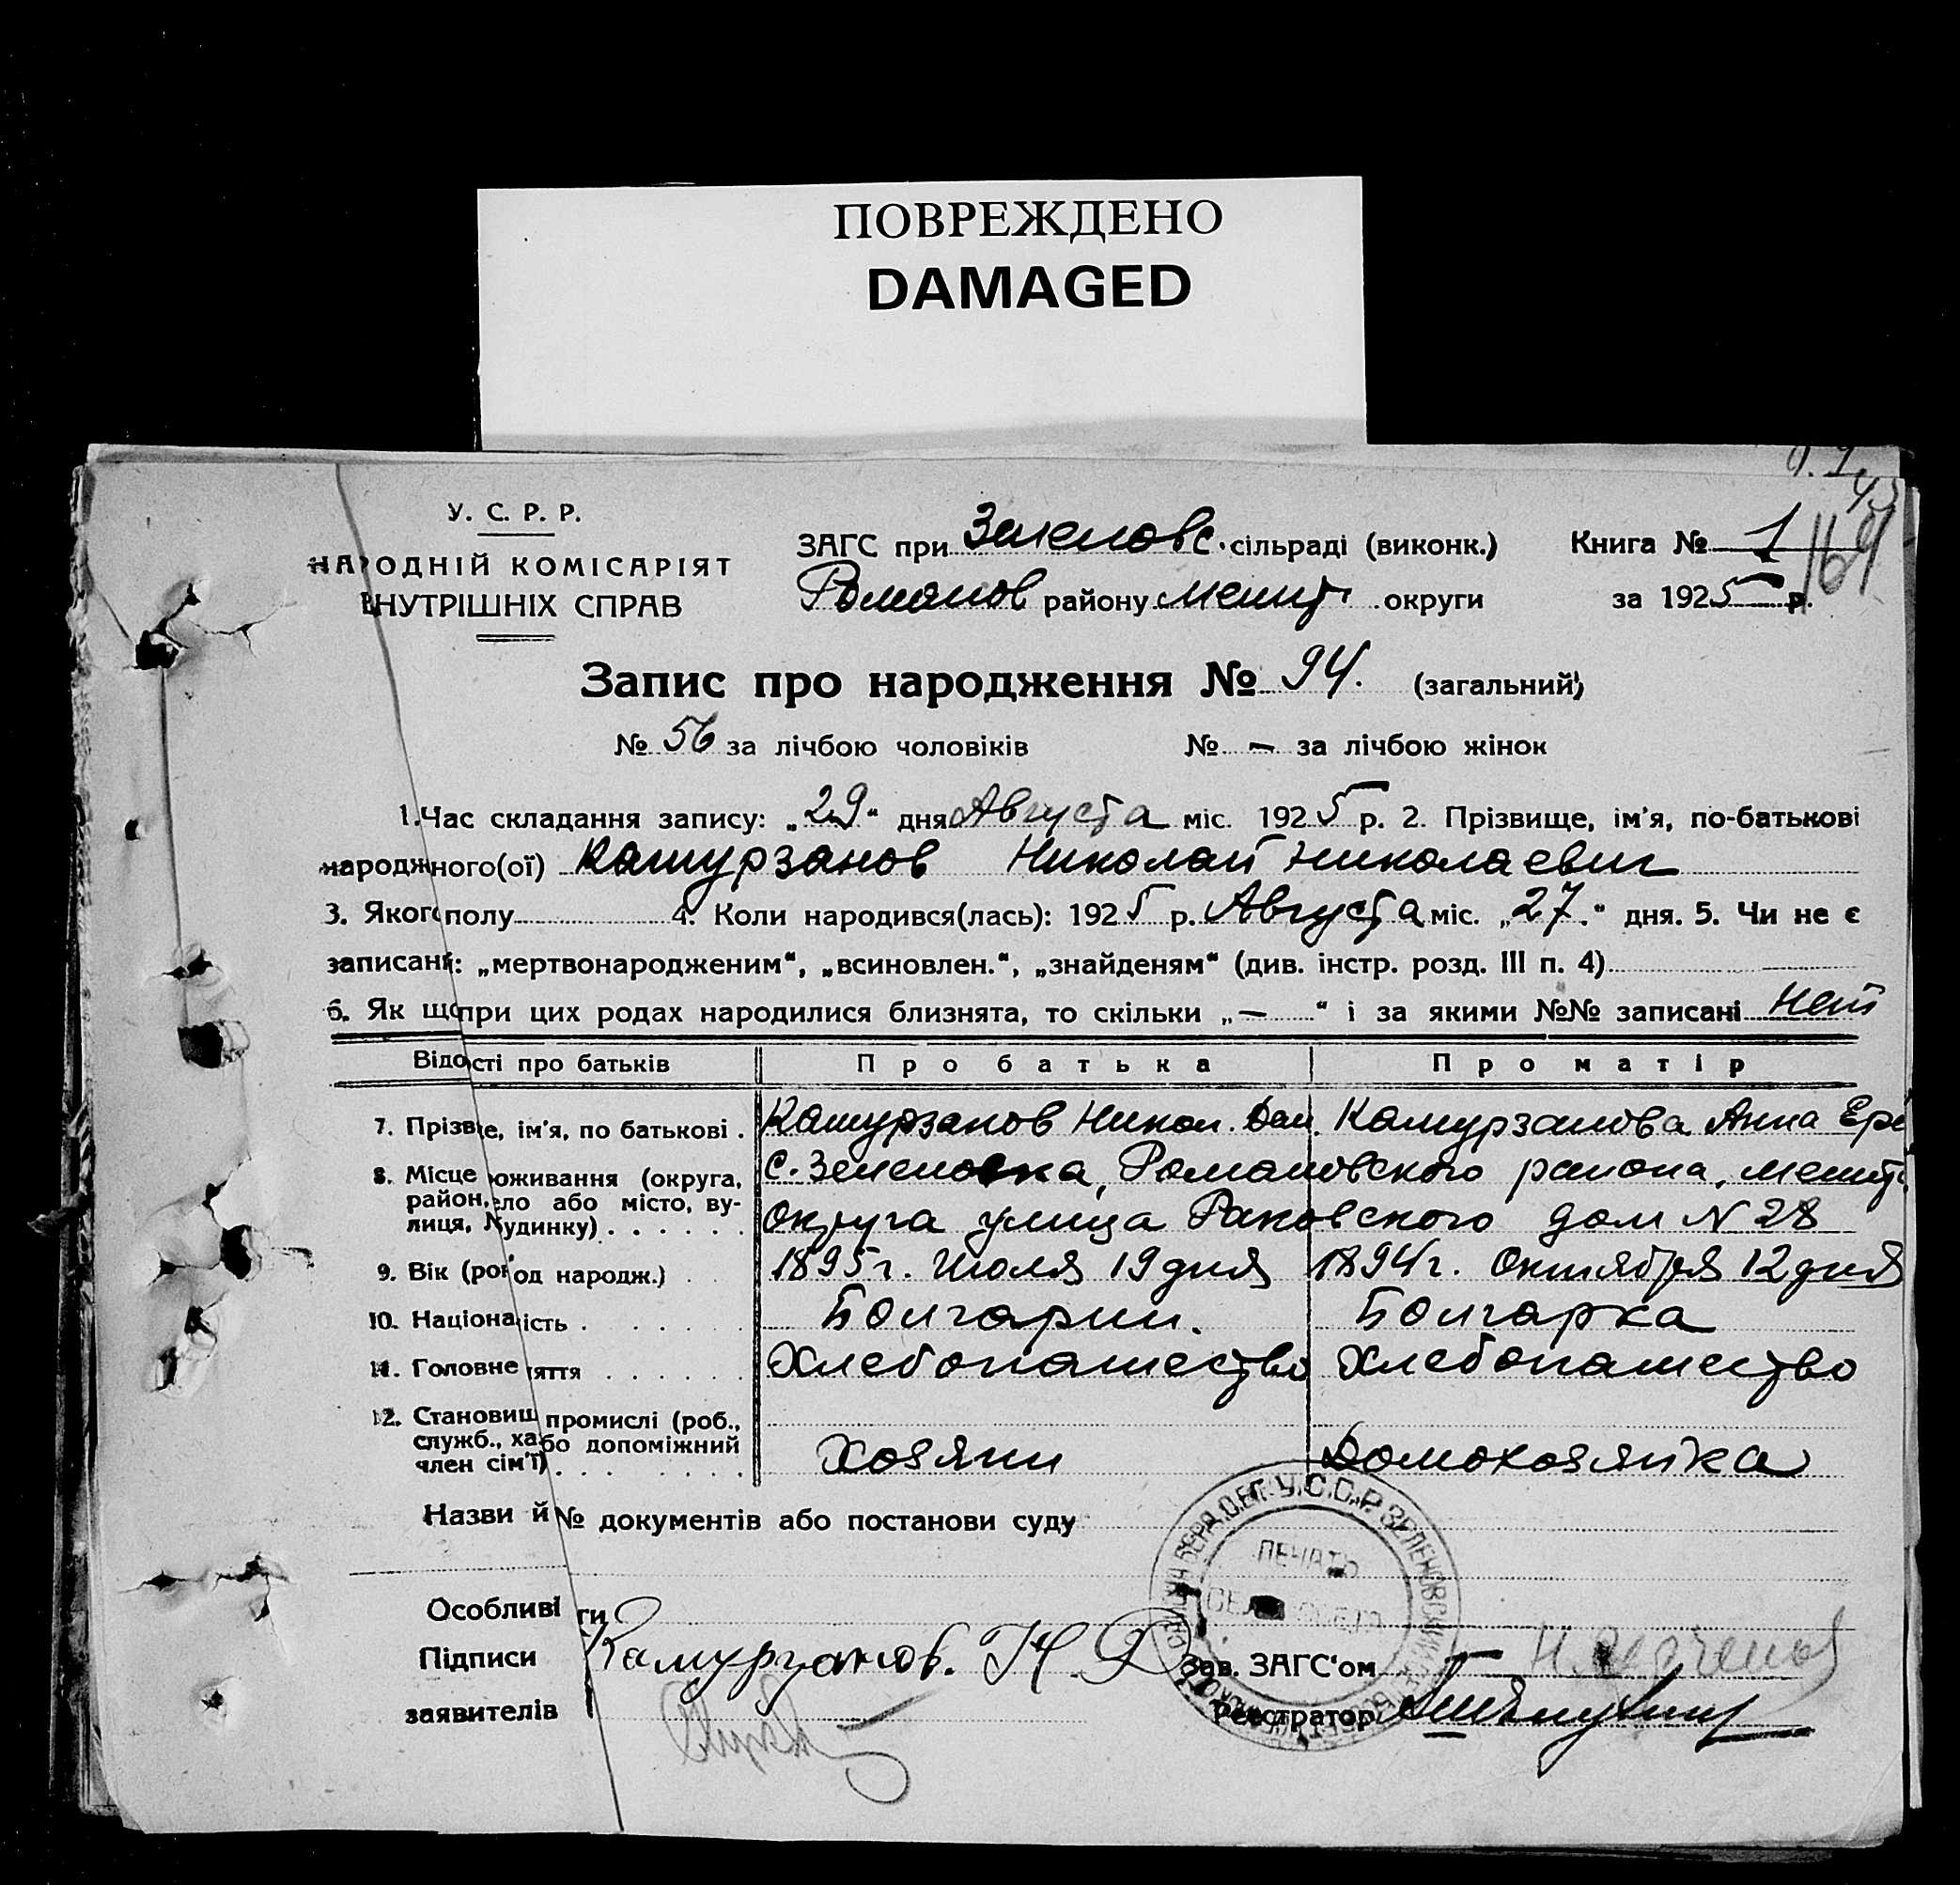 ПОВРЕЖДЕНО
DAMAGED
У. С. Р. Р.
НАРОДНІЙ КОМІСАРІЯТ
ВНУТРІШНІХ СПРАВ
ЗАГС при Зеленовс. сільраді (виконк.)
Романов району Мелит. округи
Книга № 1
164
за 1925 р.
Запис про народження № 94. (загальний)
№ 56 за лічбою чоловіків № — за лічбою жінок
1. Час складання запису: „29“ дня Августа міс. 1925 р. 2. Прізвище, ім'я, по-батькові
народжного(ої) Камурзанов Николай Николаевич
3. Якого полу 4. Коли народився(лась): 1925 р. Августа міс. „27.“ дня. 5. Чи не є
записані: „мертвонародженим“, „всиновлен.“, „знайденям“ (див. інстр. розд. III п. 4)
6. Як що при цих родах народилися близнята, то скільки „—“ і за якими №№ записані Нет
Відості про батьків Про батька Про матір
7. Прізве, ім'я, по батькові . Камурзанов Никол. Дан. Камурзанова Анна Ере
8. Місце оживання (округа,
район, ело або місто, ву-
лиця, № удинку) . . . . . .
с. Зеленовка, Романовского района, Мелит.
округа улица Раковского дом N 28
9. Вік (рок од народж.) . . 1895 г. Июля 19 дня 1894 г. Октября 12 дня
10. Націона ість . . . . . Болгарин. Болгарка
11. Головне яття . . . . . . Хлебопашество Хлебопашество
12. Становищ промислі (роб.,
служб., ха бо допоміжний
член сім'ї) . . . . . . . .
Хозяин Домохозяйка
Назви й № документів або постанови суду
Особливі ти
Підписи Камурзанов. Н. Д. Зав. ЗАГС'ом
заявителів Реєстратор
ПЕЧАТЬ